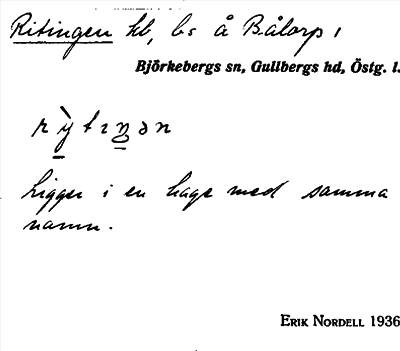 Ritingen hb, bs å Bålorp,
Björkebergs sn, Gullbergs hd, Östg. l.
rỳtıŋən
Ligger i en hage med samma
namn.
ERIK NORDELL 1936